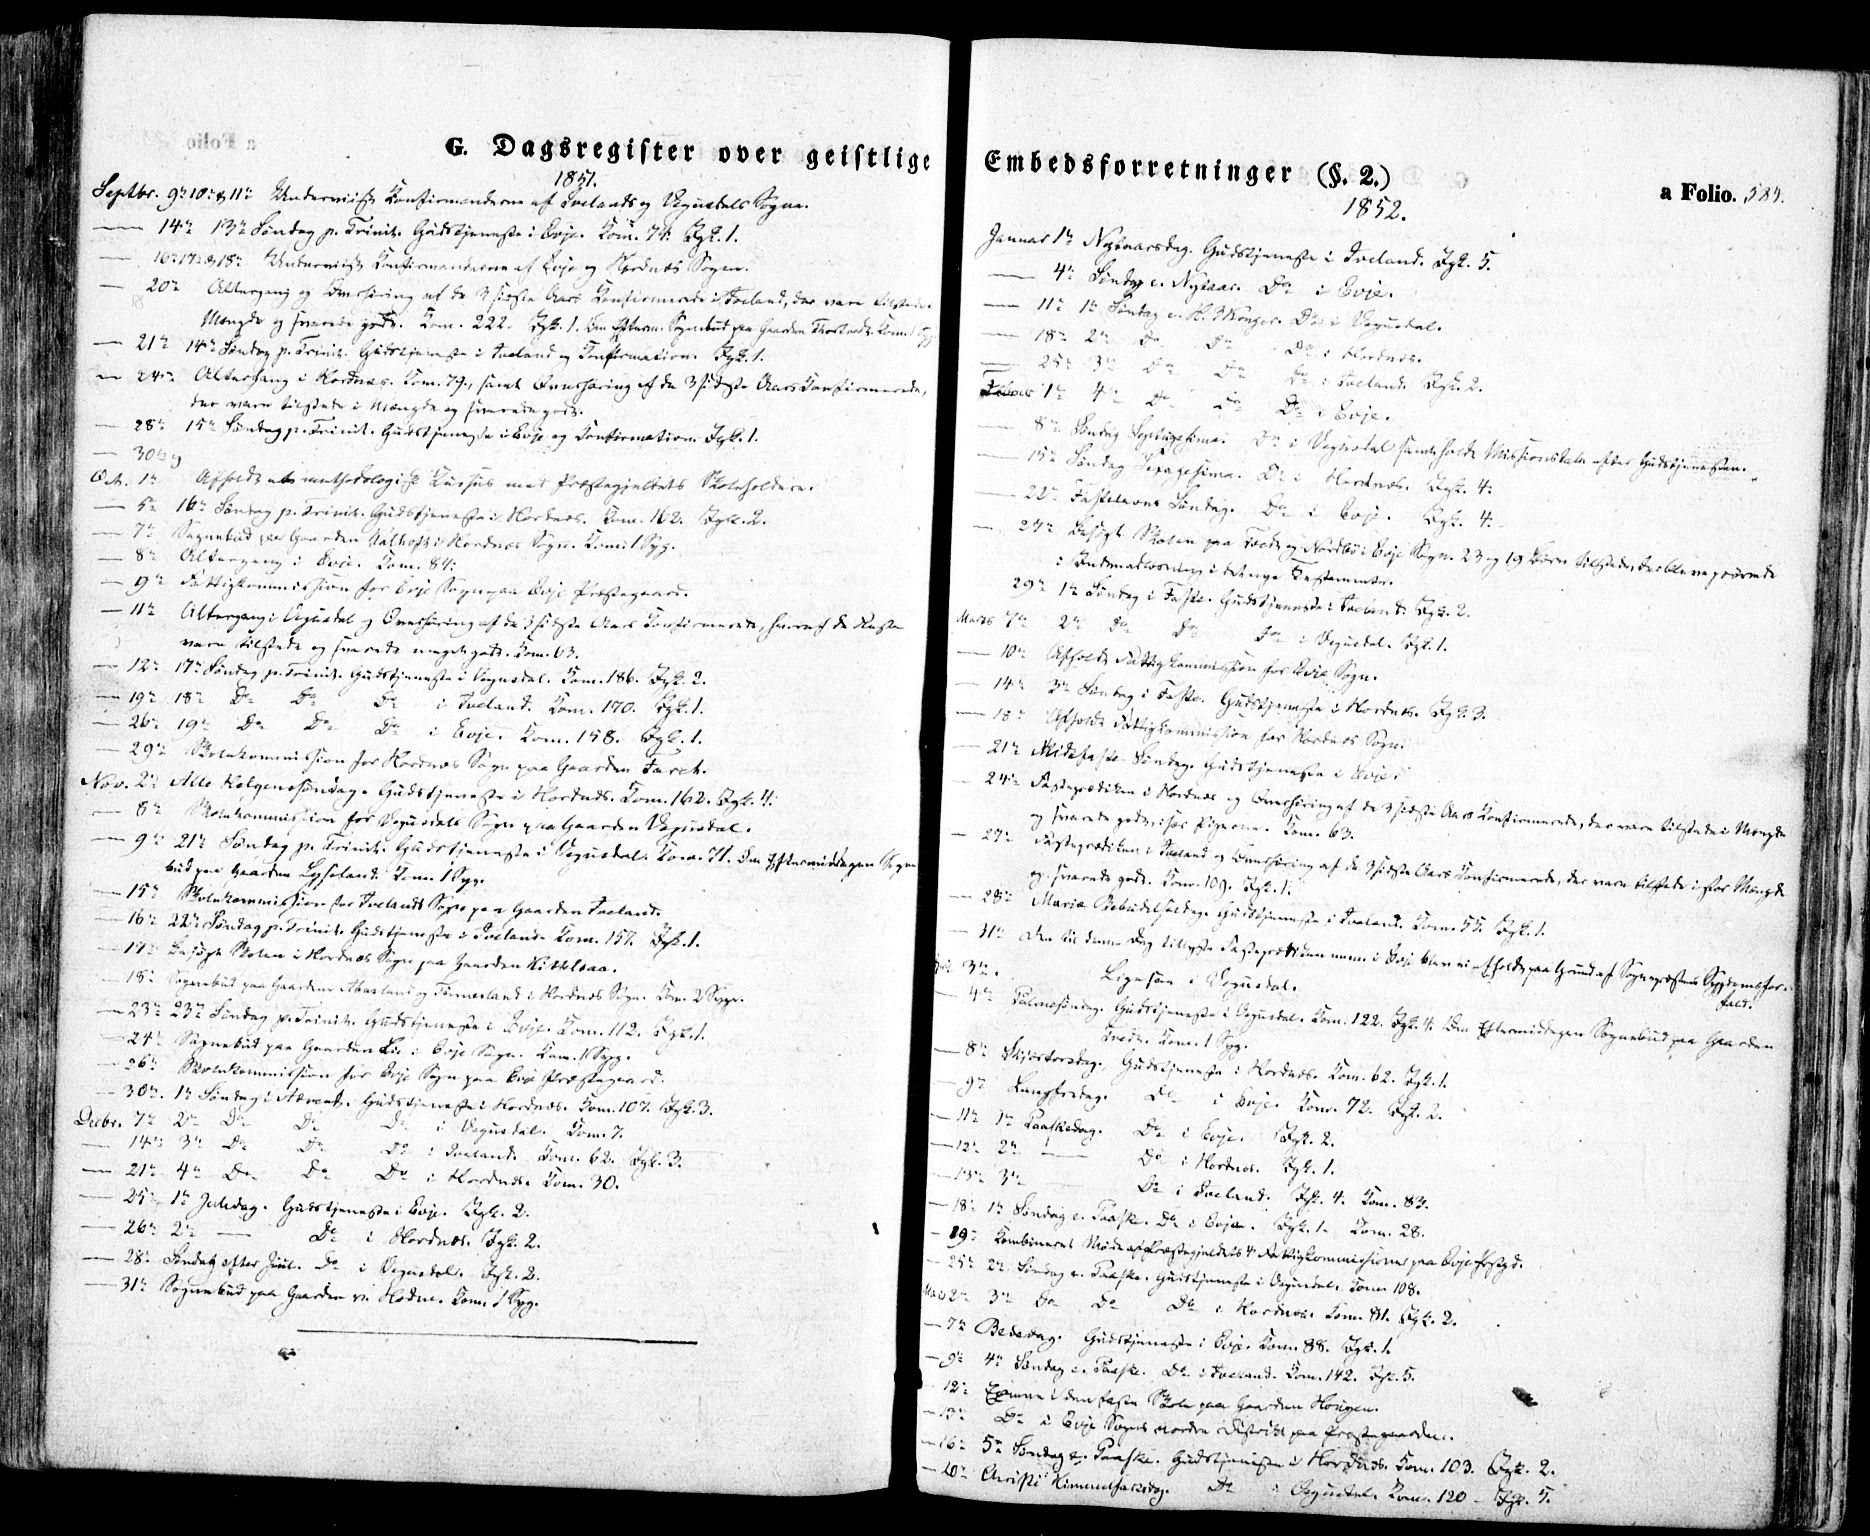 G. Dagsregister over geistlige
1851.
Septbr. 9de 10de & 11te Underviist Konfirmanderne af Ivelands og Vegusdals Sogne.
— 14de 13de Søndag p. Trinit. Gudstjeneste i Evje. Kom. 74. Igk. 1.
— 16de 17de & 18de Underviist Konfirmanderne af Evje og Hordnæs Sogne.
— 20de Altergang og Overhøring af de 3 sidste Aars Konfirmerede i Iveland, der vare tilstede i
Mængde og svarede godt. Kom. 222. Igk. 1. Om Efterm. Sognebud paa Gaarden Kom. 1 Syg.
— 21de 14de Søndag p. Trinit. Gudstjeneste i Iveland og Konfirmation. Igk. 1.
— 24de Altergang i Hordnæs. Kom. 79., samt Overhøring af de 3 sidste Aars Konfirmerede,
der vare tilstede i Mængde og svarede godt.
— 28de 15de Søndag p. Trinit. Gudstjeneste i Evje og Konfirmation. Igk. 1.
— 30te og
Oct. 1te Afholdt et methodologisk Kursus med Præstegjeldets Skoleholdere.
— 5te 16de Søndag p. Trinit. Gudstjeneste i Hordnæs. Kom. 162. Igk. 2.
— 7de Sognebud paa Gaarden i Hordnæs Sogn. Kom. 1 Syg.
— 8de Altergang i Evje. Kom. 84.
— 9de Fattigkommission for Evje Sogn paa Evje Præstegaard.
— 11te Altergang i Vegusdal og Overhøring af de 3 sidste Aars Konfirmerede, hvoraf de fleste
vare tilstede og svarede meget godt. Kom. 63.
— 12te 17de Søndag p. Trinit. Gudstjeneste i Vegusdal. Kom. 186. Igk. 2.
— 19de 18de Do Do Do i Iveland. Kom. 170. Igk. 1.
— 26de 19de Do Do Do i Evje. Kom. 158. Igk. 1.
— 29de Skolekommission for Hordnæs Sogn paa Gaarden
Nov. 2de Alle Helgens Søndag. Gudstjeneste i Hordnæs. Kom. 162. Igk. 4.
— 8de Skolekommission for Vegusdals Sogn paa Gaarden Vegusdal.
— 9de 21de Søndag p. Trinit. Gudstjeneste i Vegusdal. Kom. 71. Om Eftermiddagen Sogne-
bud paa Gaarden Lyseland. Kom. 1 Syg.
— 15de Skolekommission for Ivelands Sogn paa Gaarden Iveland.
— 16de 22de Søndag p. Trinit. Gudstjeneste i Iveland. Kom. 157. Igk. 1.
— 17de Besøgt Skolen i Hordnæs Sogn paa Gaarden Kittelsaa.
— 18de Sognebud paa Gaardene Abusland og i Hordnæs Sogn. Kom. 2 Syge.
— 23de 23de Søndag p. Trinit. Gudstjeneste i Evje. Kom. 112. Igk. 1.
— 24de Sognebud paa Gaarden Lie i Evje Sogn. Kom. 1 Syg.
— 26de Skolekommission for Evje Sogn paa Evje Præstegaard.
— 30te 1te Søndag i Advent. Gudstjeneste i Hordnæs. Kom. 107. Igk. 3.
Decbr. 7de 2de Do Do Do i Vegusdal. Kom. 7.
— 14de 3de Do Do Do i Iveland. Kom. 62. Igk. 3.
— 21de 4de Do Do Do i Hordnæs. Kom. 30.
— 25de 1te Juledag. Gudstjeneste i Evje. Igk. 2.
— 26de 2de — Do i Hordnæs. Igk. 2.
— 28de Søndag efter Juul. Do i Vegusdal. Igk. 2.
— 31te Sognebud paa Gaarden Kom. 1 Syg.
Embedsforretninger (§. 2.)
a Folio. 584.
1852.
Januar 1te Nytaarsdag. Gudstjeneste i Iveland. Igk. 5.
— 4de Søndag e. Nytaar. Do i Evje.
— 11te 1te Søndag e. H. 3 Konger. Do i Vegusdal.
— 18de 2de Do Do Do i Hordnæs.
— 25de 3de Do Do Do i Iveland. Igk. 2.
Febr. 1te 4de Do Do Do i Evje.
— 8de Søndag Septuagesima. Do i Vegusdal samt holdt Missionstale efter Gudstjenesten.
— 15de Søndag Sexagesima. Do i Hordnæs. Igk. 4.
— 22de Fastelavns Søndag. Do i Evje. Igk. 4.
— 27de Besøgt Skolen paa og i Evje Sogn. 23 og 19 Børn tilstede, de bleve prøvede
i Indenadlæsning i det nye Testamente.
29de 1te Søndag i Faste. Gudstjeneste i Iveland. Igk. 2.
Marts 7de 2de Do Do Do i Vegusdal. Igk. 1.
— 10de Afholdt Fattigkommission for Evje Sogn.
— 14de 3de Søndag i Faste. Gudstjeneste i Hordnæs. Igk. 3.
— 18de Afholdt Fattigkommission for Hordnæs Sogn.
— 21de Midfaste Søndag. Gudstjeneste i Evje.
— 24de Fasteprædiken i Hordnæs og Overhøring af de 3 sidste Aars Konfirmerede, der vare tilstede i Mængde
og svarede godt, især Pigerne. Kom. 63.
— 27de Fasteprædiken i Iveland og Overhøring af de 3 sidste Aars Konfirmerede, der vare tilstede i stor Mængde
og svarede godt. Kom. 109. Igk. 1.
— 28de Mariæ Bebudelsesdag. Gudstjeneste i Iveland. Kom. 55. Igk. 1.
— 31te Den til denne Dag tillyste Fasteprædiken i Evje blev ei afholdt paa Grund af Sognepræstens Sygdomsfor-
fald.
April 3de. Ligesaa i Vegusdal.
— 4de Palmesøndag. Gudstjeneste i Vegusdal. Kom. 122. Igk. 4. Om Eftermiddagen Sognebud paa Gaarden
Kom. 1 Syg.
— 8de Skjærtorsdag. Gudstjeneste i Hordnæs. Kom. 62. Igk. 1.
— 9de Langfredag. Do i Evje. Kom. 72. Igk. 2.
— 11te 1te Paaskedag. Do i Evje. Igk. 2.
— 12te 2de — Do i Hordnæs. Igk. 1.
— 13de 3de Do i Iveland. Igk. 4. Kom. 83.
— 18de 1te Søndag e. Paaske. Do i Evje. Igk. 1. Kom. 28.
— 19de Kombineret Møde af Præstegjeldets 4 Fattigkommissioner paa Evje Prstgd.
— 25de 2de Søndag e. Paaske. Gudstjeneste i Vegusdal. Kom. 108.
Mai 2de 3de Do Do Do i Hordnæs. Kom. 81. Igk. 2.
— 7de Bededag. Gudstjeneste i Evje. Kom. 88. Igk. 1.
— 9de 4de Søndag e. Paaske. Do i Iveland. Kom. 142. Igk. 5.
— 12te Examen i den faste Skole paa Gaarden
— 13de Do i Evje Sogns nordre District paa Præstegaarden.
— 16de 5te Søndag e. Paaske. Gudstjeneste i Hordnæs. Kom. 103. Igk. 2.
— 20de Christi Himmelfartsdag. Do i Vegusdal. Kom. 120 — Igk. 5.